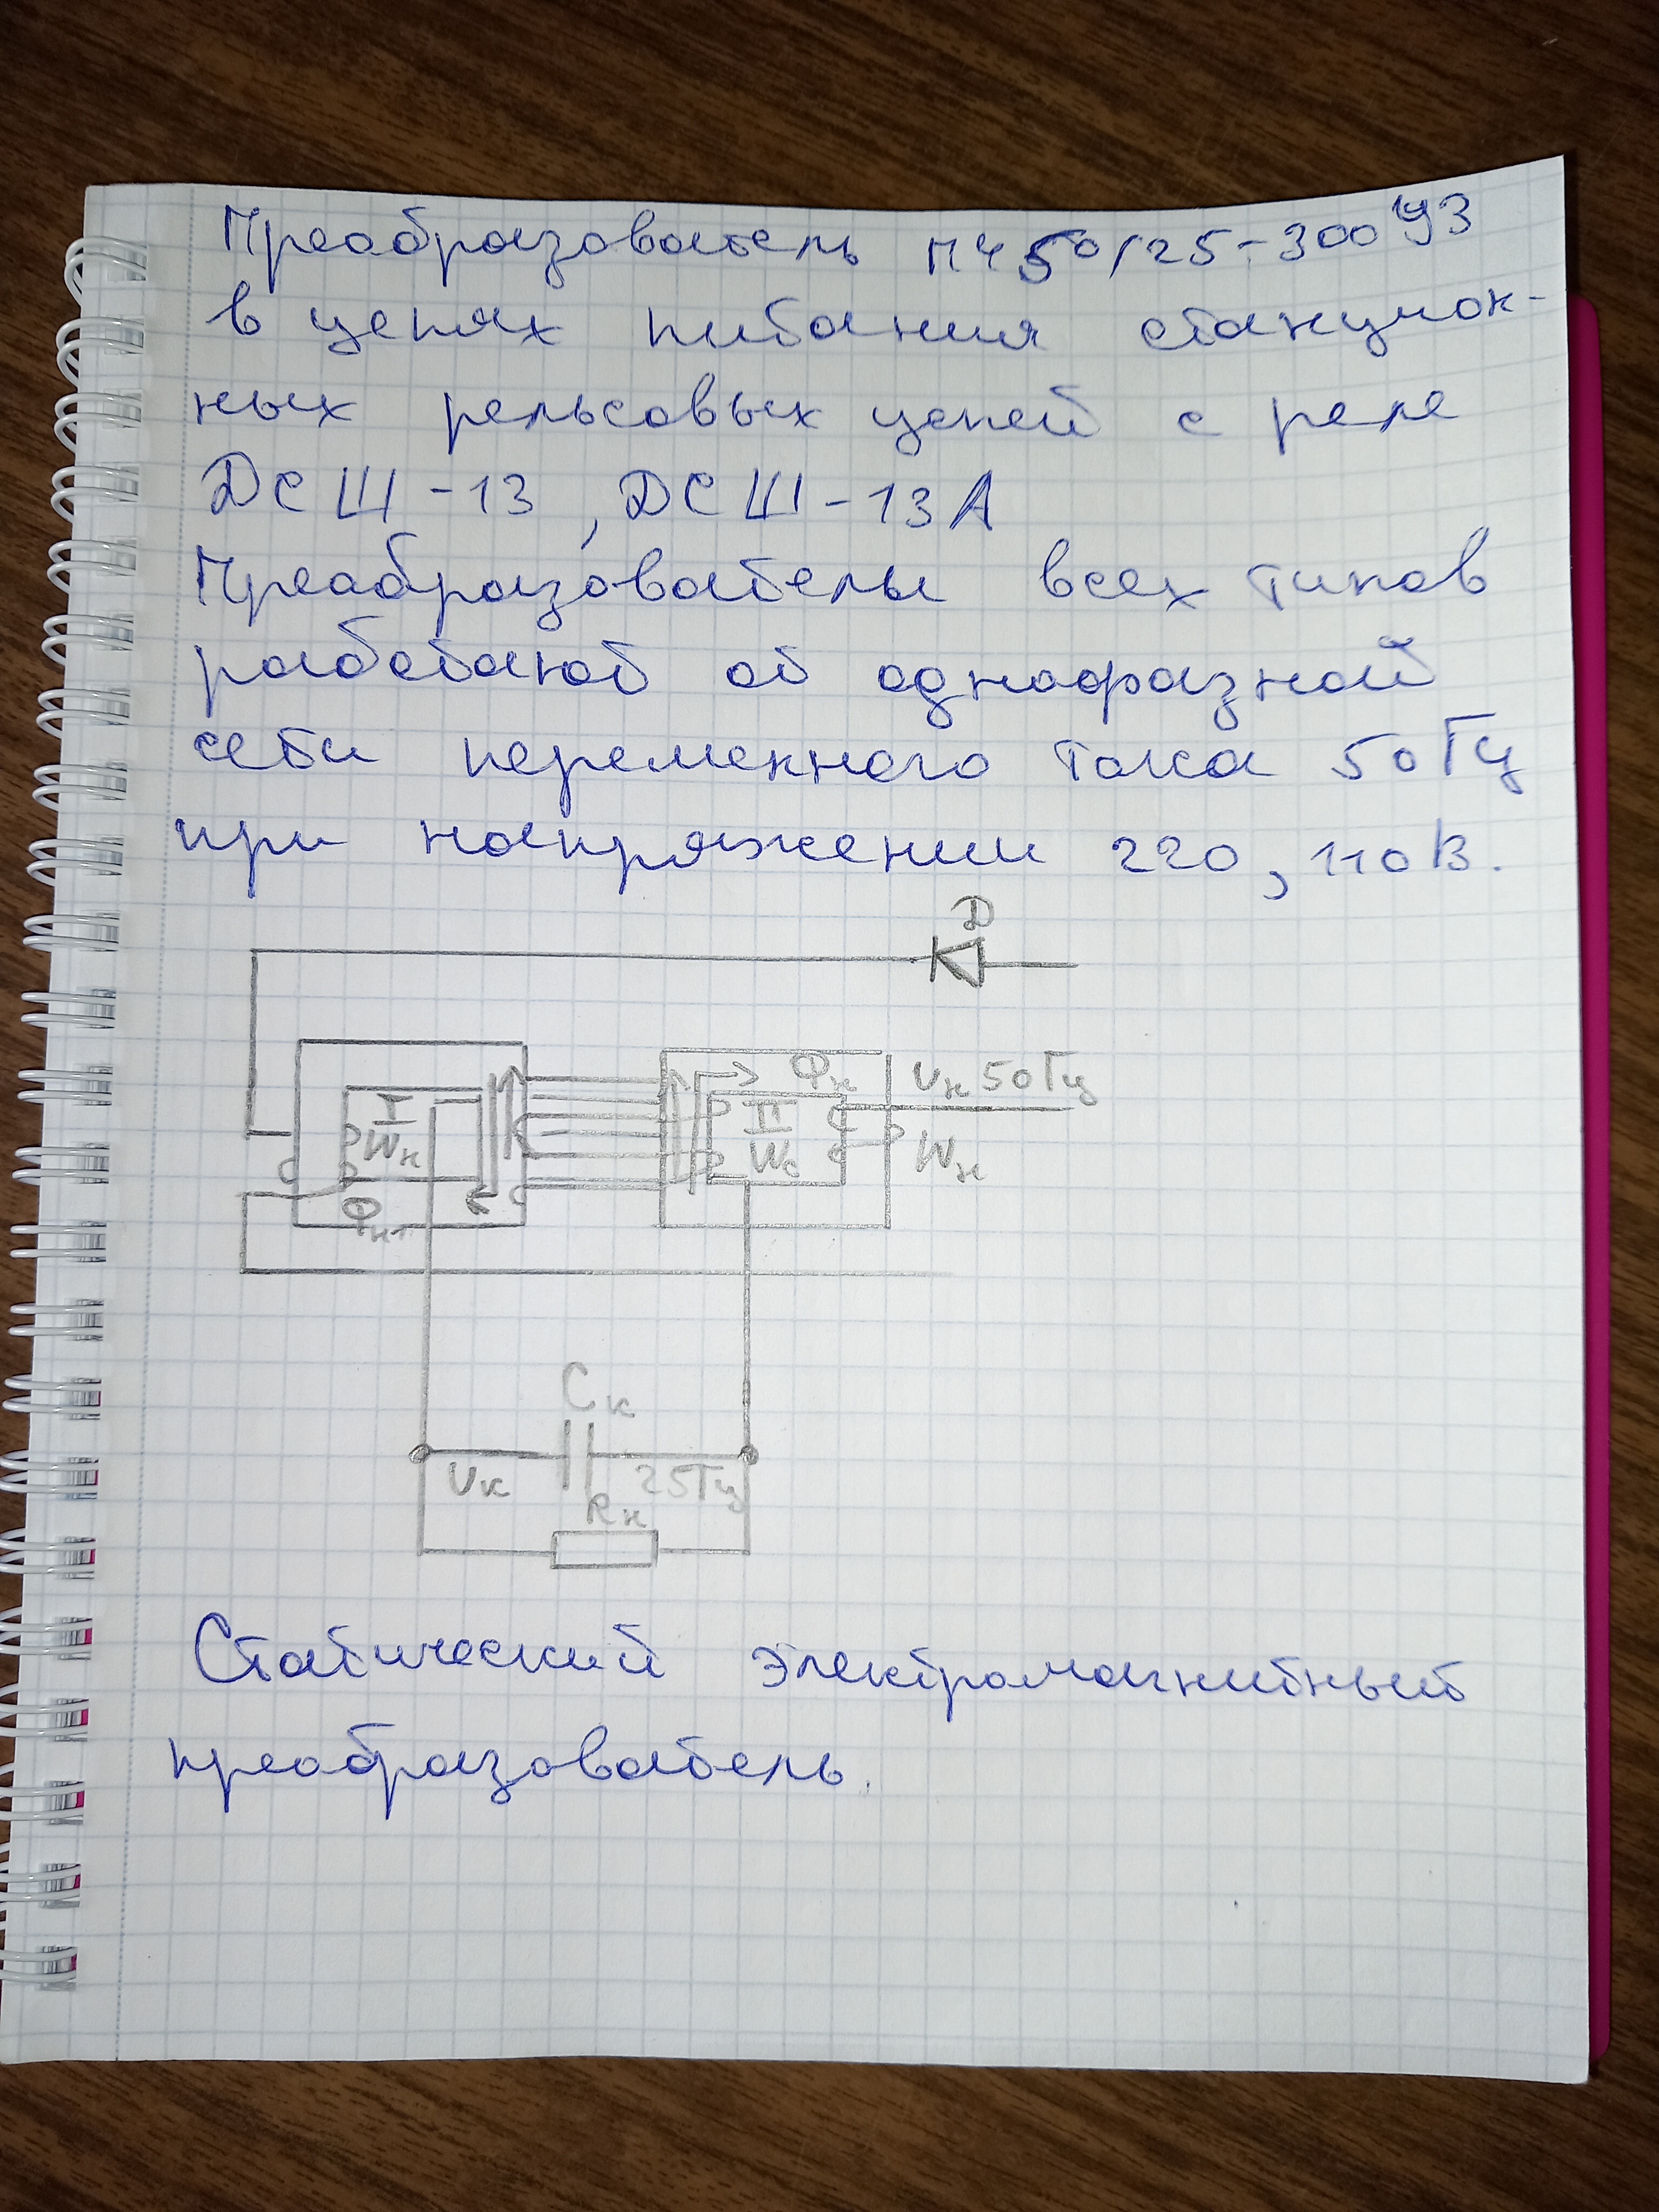 Преобразователь ПЧ 50/25-300 УЗ
в цепях питания станцион-
ных рельсовых цепей с реле
ДСШ-13, ДСШ-13А
Преобразователи всех типов
работают от однофазной
сети переменного тока 50Гц
при напряжении 220, 110В.
Д
I
Wк
Фн1
Фн
II
Wс
Uн 50Гц
Wн
Cк
Uк
25Гц
Rн
Статический электромагнитный
преобразователь.